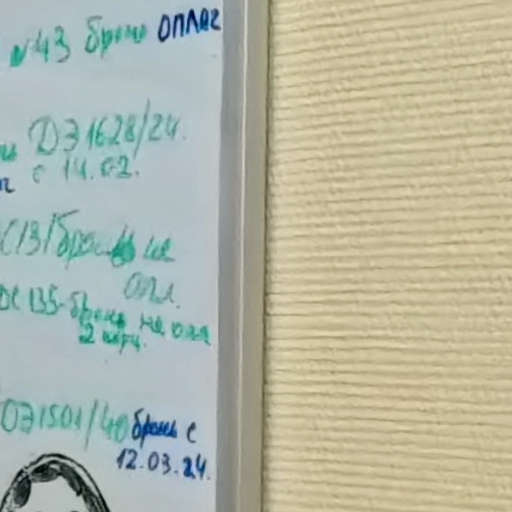 №43 бронь оплаг
ДЭ1628/24.
с 14.02.
С131 бронь не
опл.
ОС 135-бронь не опл
2 корп.
ОЭ1501/40 бронь с
12.03.24.